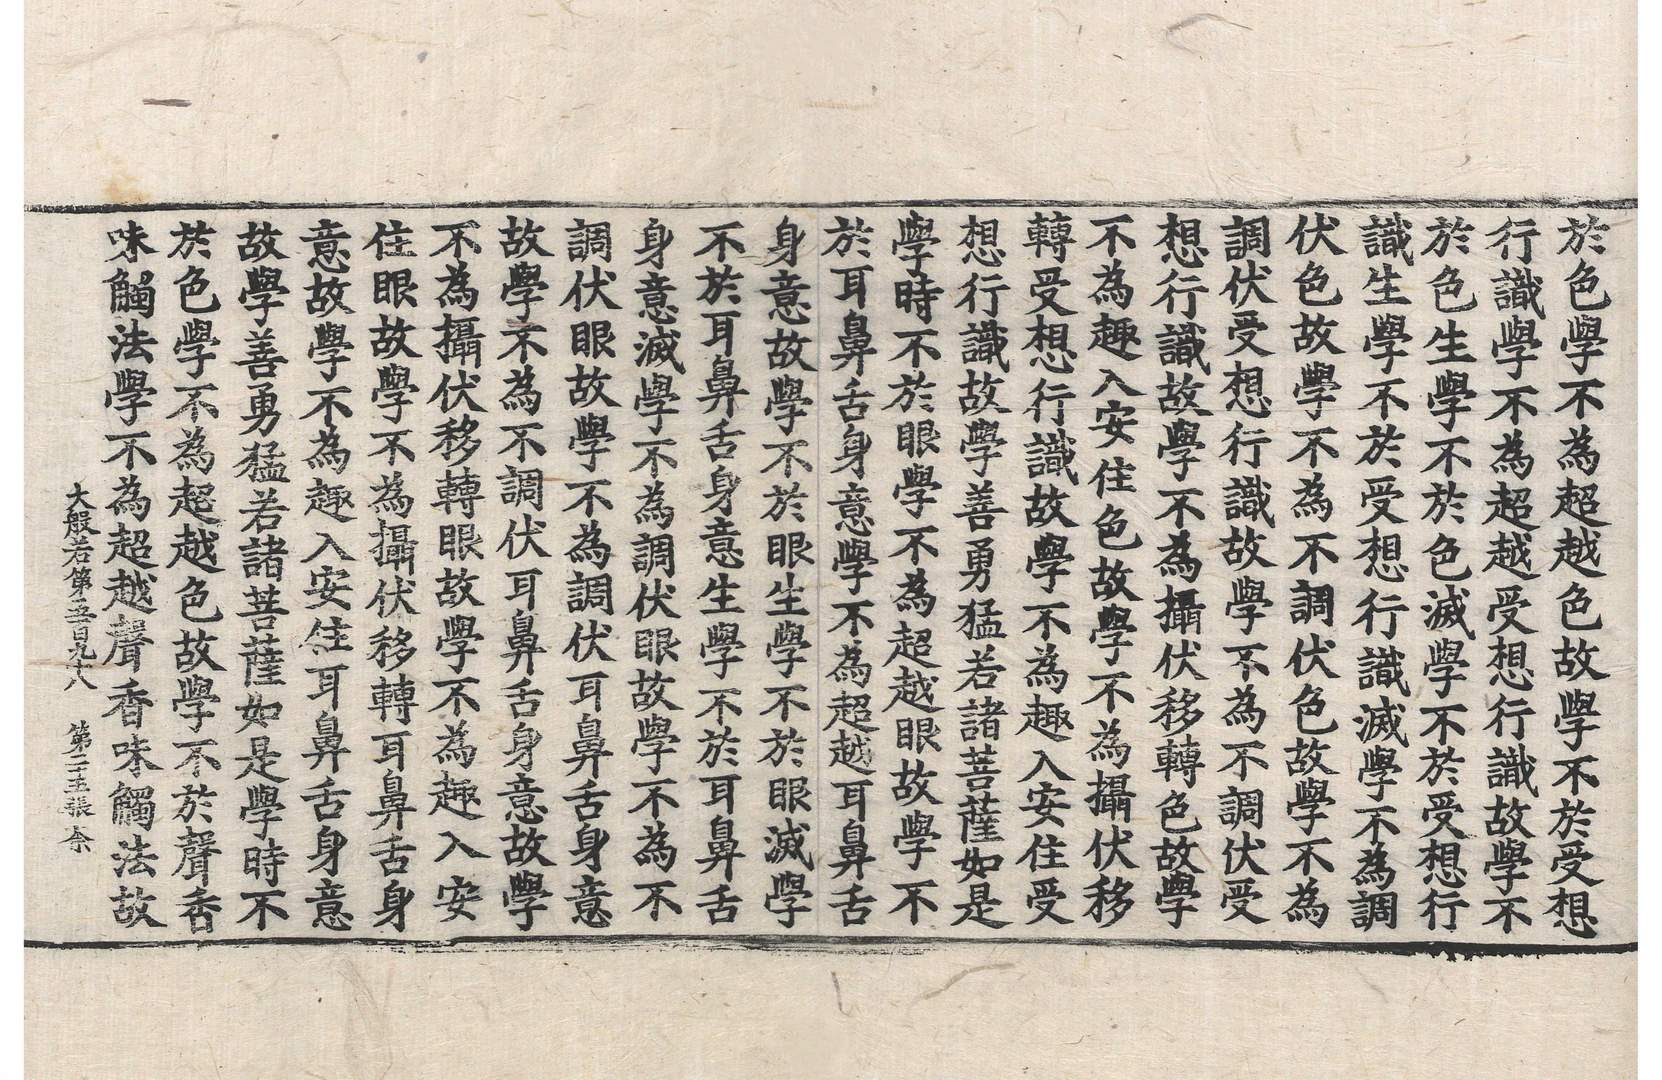 於色學不為超越色故學不於受想
行識學不為超越受想行識故學不
於色生學不於色滅學不於受想行
識生學不於受想行識滅學不為調
伏色故學不為不調伏色故學不為
調伏受想行識故學不為不調伏受
想行識故學不為攝伏移轉色故學
不為趣入安住色故學不為攝伏移
轉受想行識故學不為趣入安住受
想行識故學善勇猛若諸菩薩如是
學時不於眼學不為超越眼故學不
於耳鼻舌身意學不為超越耳鼻舌
身意故學不於眼生學不於眼滅學
不於耳鼻舌身意生學不於耳鼻舌
身意滅學不為調伏眼故學不為不
調伏眼故學不為調伏耳鼻舌身意
故學不為不調伏耳鼻舌身意故學
不為攝伏移轉眼故學不為趣入安
住眼故學不為攝伏移轉耳鼻舌身
意故學不為趣入安住耳鼻舌身意
故學善勇猛若諸菩薩如是學時不
於色學不為超越色故學不於聲香
味觸法學不為超越聲香味觸法故
大般若第五百九十八 第二五張 柰